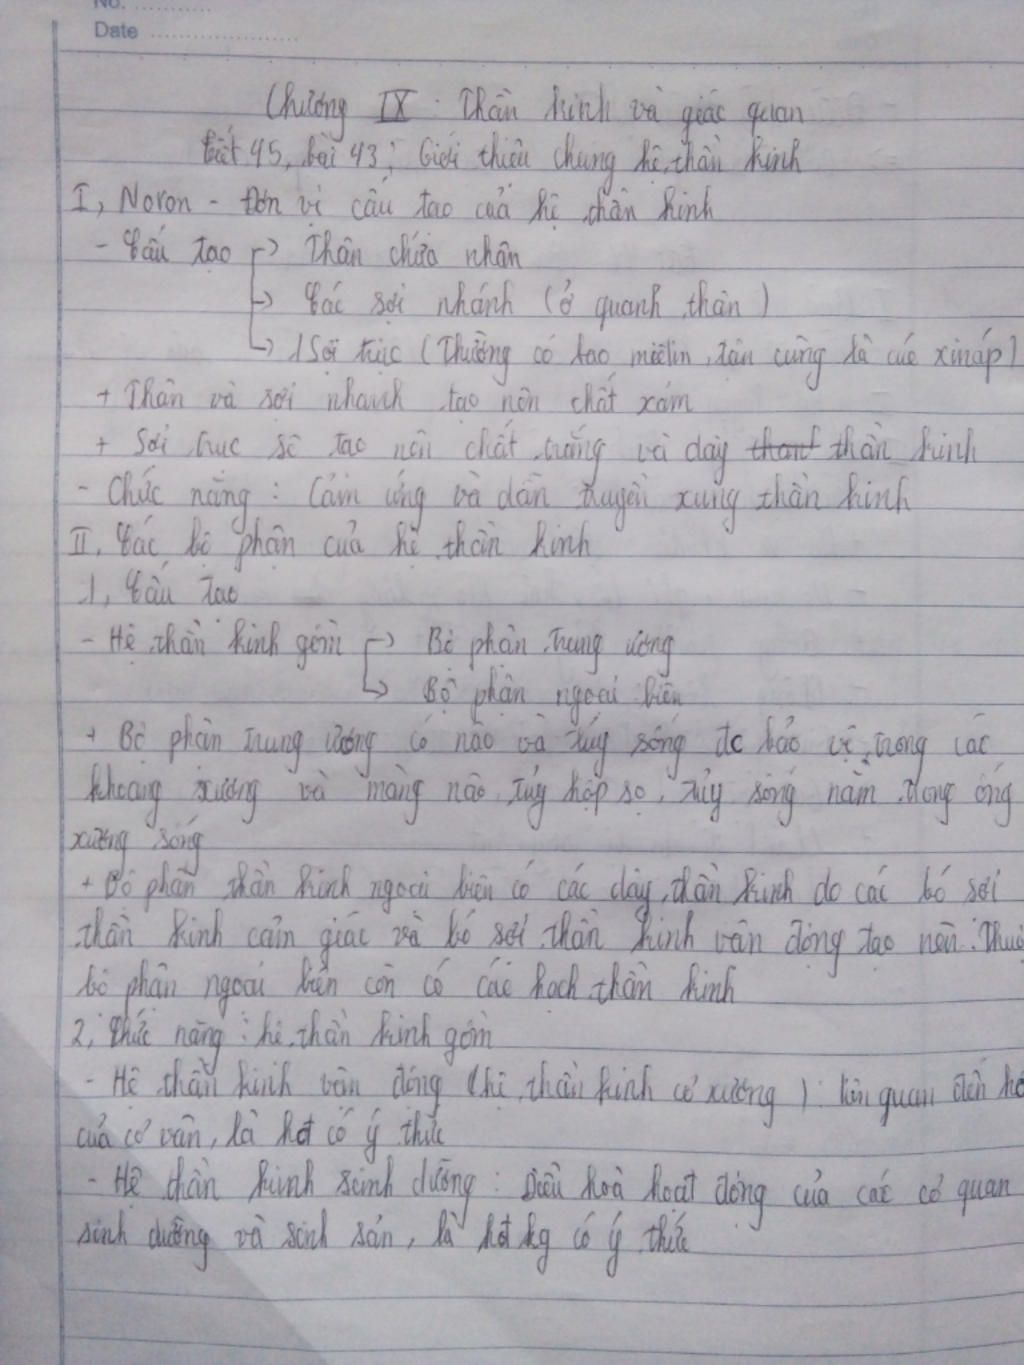 No. ............
Date ......................
Chương IX : Thần kinh và giác quan
tiết 45, bài 43 : Giới thiệu chung hệ thần kinh
I, Nơron - Đơn vị cấu tạo của hệ thần kinh
- Cấu tạo → Thân chứa nhân
→ Các sợi nhánh (ở quanh thân)
→ 1 Sợi trục (Thường có bao miêlin, tận cùng là cúc xináp)
+ Thân và sợi nhanh tạo nên chất xám
+ Sợi trục sẽ tạo nên chất trắng và dây thần kinh
- Chức năng : Cảm ứng và dẫn truyền xung thần kinh
II, Các bộ phận của hệ thần kinh
1, Cấu tạo
- Hệ thần kinh gồm → Bộ phận trung ương
→ Bộ phận ngoại biên
+ Bộ phận trung ương có não và tủy sống đc bảo vệ trong các
khoang xương và màng não tủy hộp sọ, tủy sống nằm trong ống
xương sống
+ Bộ phần thần kinh ngoại biên có các dây thần kinh do các bó sợi
thần kinh cảm giác và bó sợi thần kinh vận động tạo nên. Thuộ
bộ phận ngoại biên còn có các hạch thần kinh
2, Chức năng : hệ thần kinh gồm
- Hệ thần kinh vận động (hệ thần kinh cơ xương) : liên quan đến hđ
của cơ vân, là hđ có ý thức
- Hệ thần kinh sinh dưỡng : Điều hoà hoạt động của các cơ quan
sinh dưỡng và sinh sản, là hđ kg có ý thức